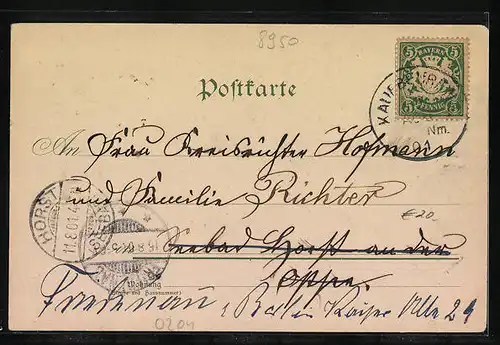 8950
BAYERN
5 5
5 PFENNIG 5
KAUFB
Nm.
Postkarte
An Frau Kreisrichter Hofmann
und Familie Richter
HORST
11.8.01
€20.-
Seebad Horst an der
Ostsee.
Wohnung
(Straße und Hausnummer)
Friedenau, Berlin Kaiser Allee 29
0204